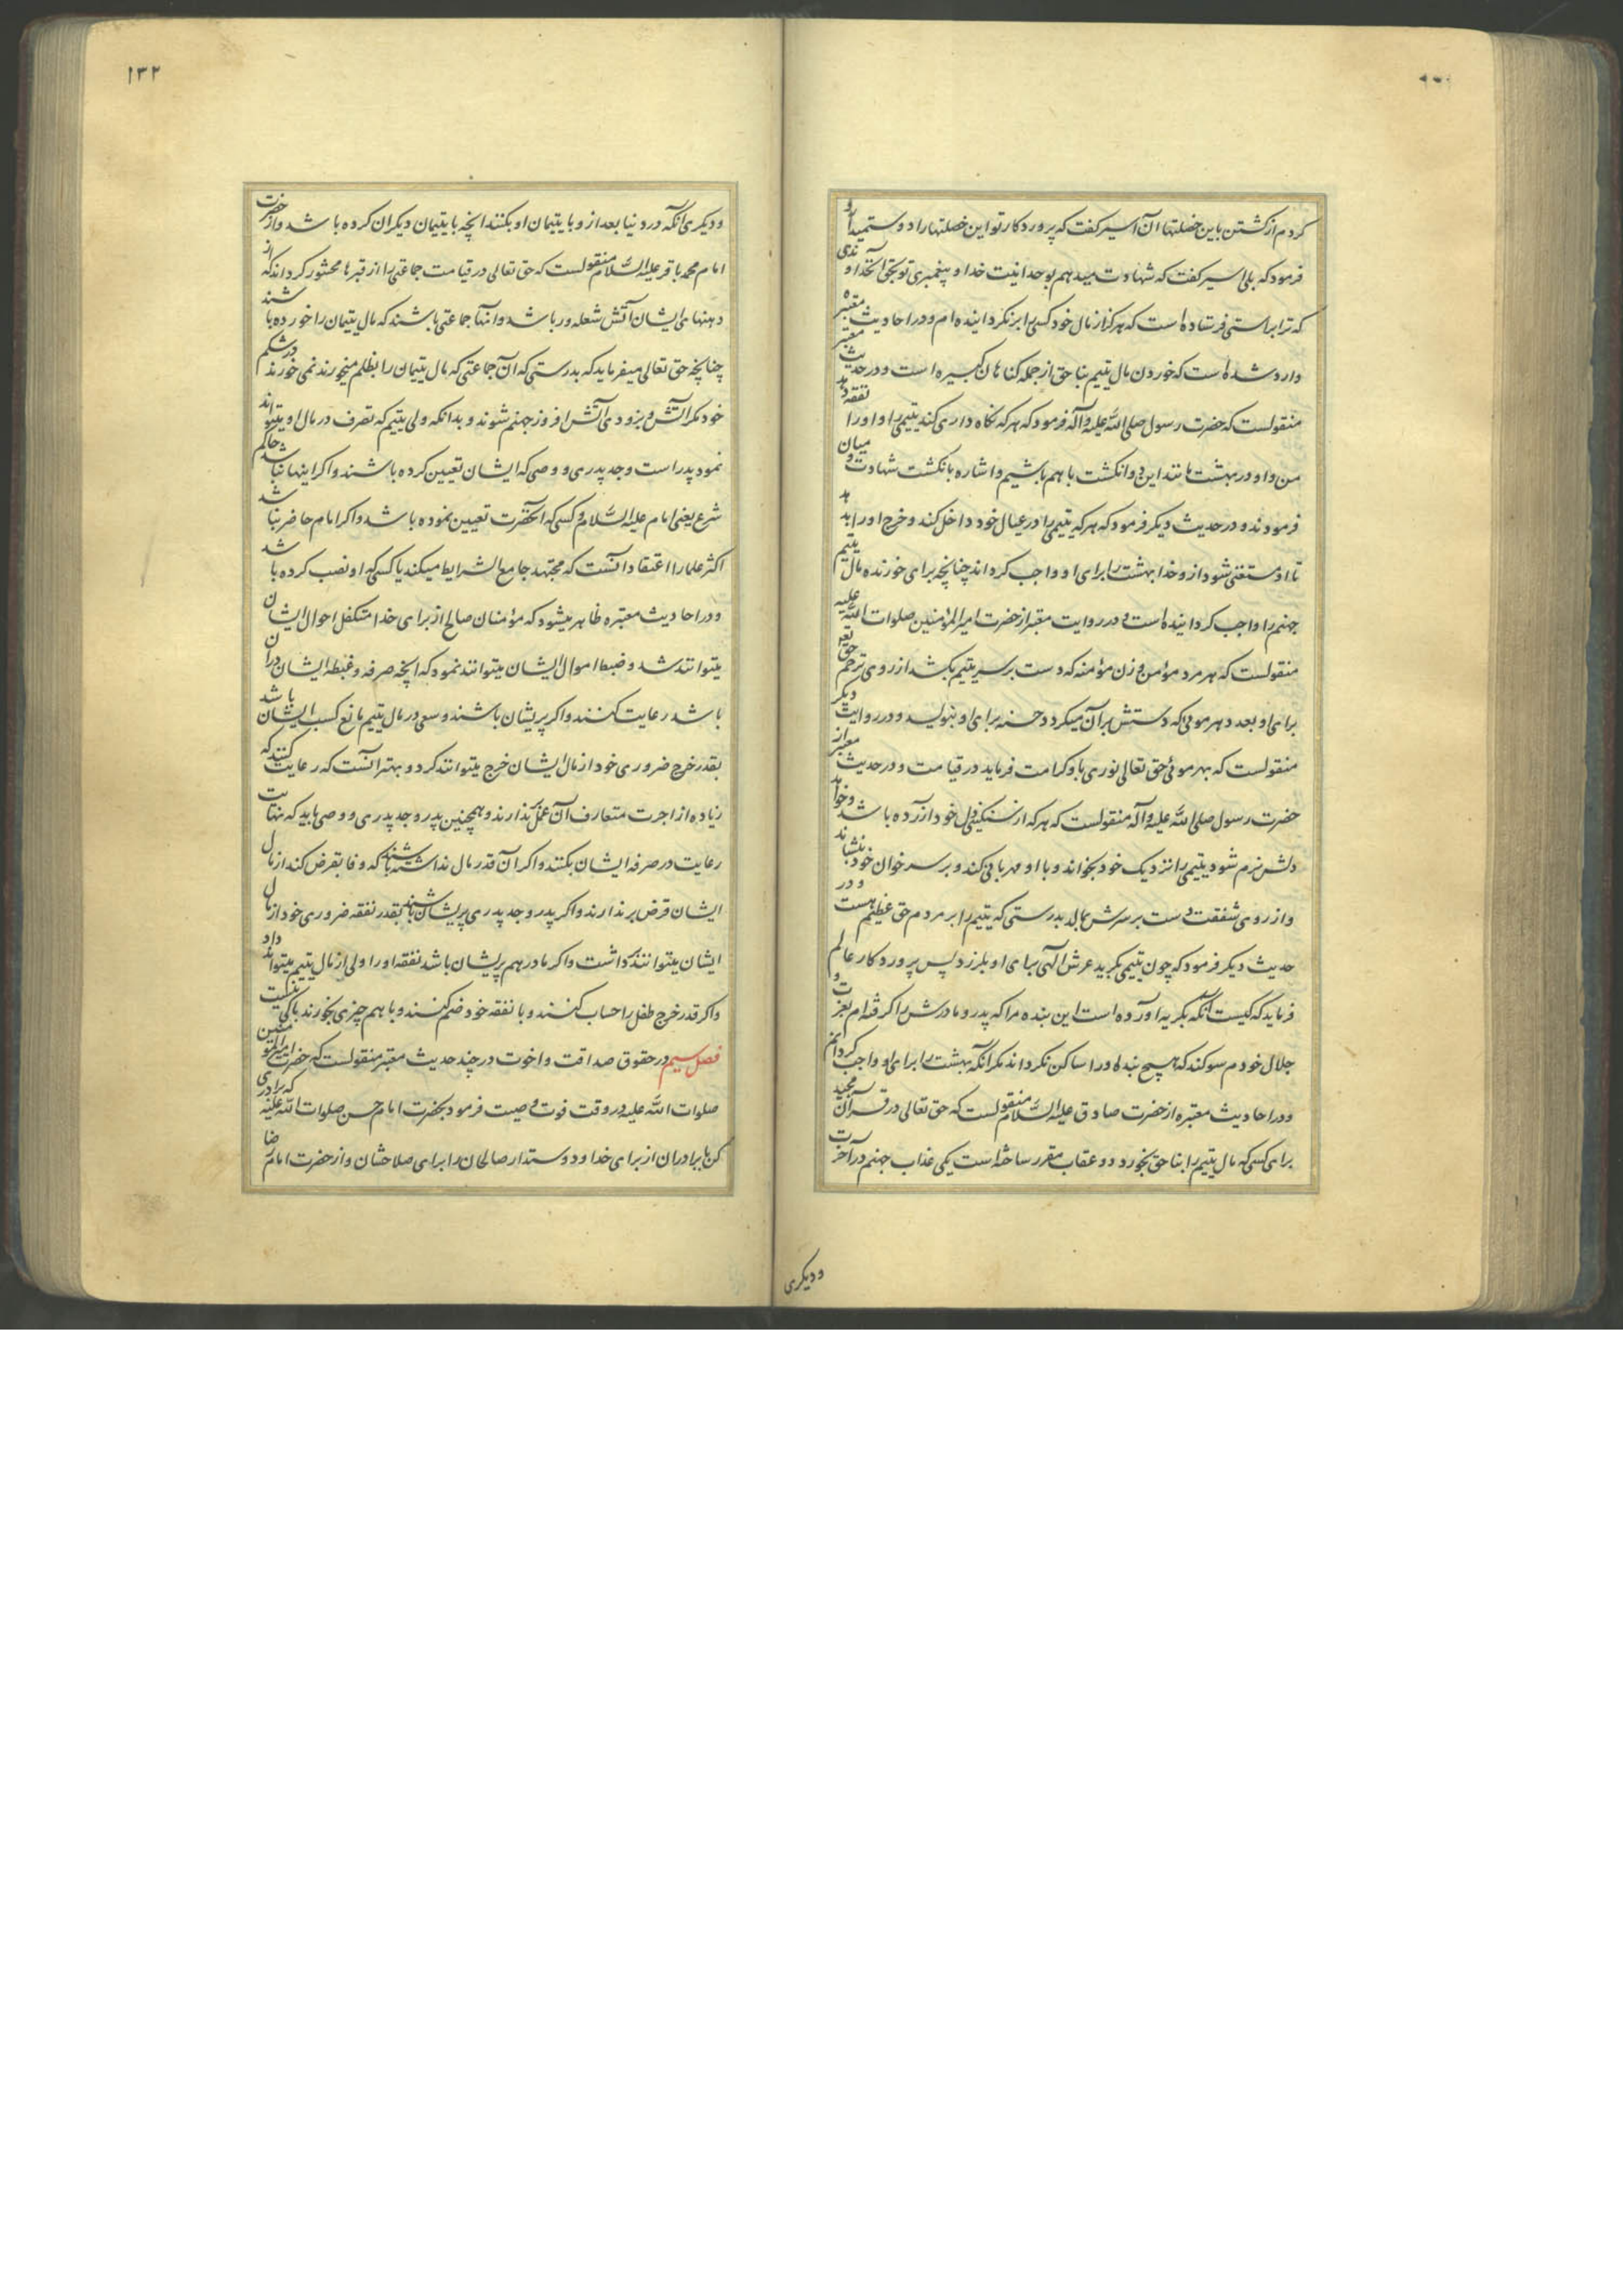 کردم از کشتن باین خصلتها آن اسیر کفت که پروردکار تو این خصلتها را دوست میدارد
فرمود که بلی اسیر کفت که شهادت میدهم بوحدانیت خدا و پیغمبری تو بحق آنخداوندی
که ترا براستی فرستاده است که هرکز از مال خود کسی را بر نکردانیده ام و در احادیث معتبره
وارد شده است که خوردن مال یتیم بناحق از جمله کناهان کبیره است و در حدیث معتبر
منقولست که حضرت رسول صلی الله علیه وآله فرمود که هر که نکاه داری کند یتیمی را و او را نفقه دهد
من و او در بهشت مانند این دو انکشت با هم باشیم و اشاره بانکشت شهادت و میان
فرمودند و در حدیث دیکر فرمود که هر که یتیمی را در عیال خود داخل کند و خرج او را بدهد
تا او مستغنی شود از و خدا بهشت را برای او واجب کرداند چنانچه برای خورنده مال یتیم
جهنم را واجب کردانیده است و در روایت معتبر از حضرت امیر المؤمنین صلوات الله علیه
منقولست که هر مرد مؤمن و زن مؤمنه که دست بر سر یتیم بکشد از روی ترحم حق تعه
برای او بعدد هر موئی که دستش بر آن میکردد حسنه برای او بنویسد و در روایت دیکر
منقولست که بهر موئی حق تعالی نوری باو کرامت فرماید در قیامت و در حدیث معتبر از
حضرت رسول صلی الله علیه وآله منقولست که هر که از سنکینی دل خود آزرده باشد و خواهد
دلش نرم شود یتیمی را نزدیک خود بخواند و با او مهربانی کند و بر سر خوان خود بنشاند
و از روی شفقت دست بر سرش بمالد بدرستی که یتیم را بر مردم حق عظیم هست و در
حدیث دیکر فرمود که چون یتیمی بکرید عرش الهی برای او بلرزد پس پروردکار عالم
فرماید که کیست آنکه بکریه آورده است این بنده مرا که پدر و مادرش را کرفته ام بعزت و
جلال خودم سوکند که هیچ بنده او را ساکن نکرداند مکر آنکه بهشت را برای او واجب کردانم
و در احادیث معتبره از حضرت صادق علیه السلام منقولست که حق تعالی در قرآن مجید
برای کسی که مال یتیم را بناحق بخورد دو عقاب مقرر ساخته است یکی عذاب جهنم در آخرت
و دیکری
۱۳۲
و دیکری آنکه در دنیا بعد از و با یتیمان او بکنند آنچه با یتیمان دیکران کرده باشد و از حضرت
امام محمد باقر علیه السلام منقولست که حق تعالی در قیامت جماعتی را از قبرها محشور کرداند که از
دهنهای ایشان آتش شعله ور باشد و آنها جماعتی باشند که مال یتیمان را خورده باشند
چنانچه حق تعالی میفرماید که بدرستی که آن جماعتی که مال یتیمان را بظلم میخورند نمی خورند در شکم
خود مکر آتش و بزودی آتش افروز جهنم شوند و بدانکه ولی یتیم که تصرف در مال او میتواند
نمود پدر است و جد پدری و وصی که ایشان تعیین کرده باشند و اکر اینها نباشد حاکم
شرع یعنی امام علیه السلام و کسی که آنحضرت تعیین نموده باشد و اکر امام حاضر نباشد
اکثر علما را اعتقاد آنست که مجتهد جامع الشرایط میکند یا کسی که او نصب کرده باشد
و در احادیث معتبره ظاهر میشود که مؤمنان صالح از برای خدا متکفل احوال ایشان
میتوانند شد و ضبط اموال ایشان میتوانند نمود که آنچه صرفه و غبطه ایشان در آن
باشد رعایت کنند و اکر پریشان باشند و سعی در مال یتیم مانع کسب ایشان باشد
بقدر خرج ضروری خود از مال ایشان خرج میتوانند کرد و بهتر آنست که رعایت کنند که
زیاده از اجرت متعارف آن عمل نکذارند و همچنین پدر و جد پدری و وصی باید که نهایت
رعایت در صرفه ایشان بکنند و اکر آن قدر مال نداشته باشند که وفا بقرض کند از مال
ایشان قرض برندارند و اکر پدر و جد پدری پریشان باشند بقدر نفقه ضروری خود از مال
ایشان میتوانند کذاشت و اکر مادر هم پریشان باشد نفقه او را ولی از مال یتیم میتواند داد
و اکر قدر خرج طفل را حساب کنند و با نفقه خود ضم کنند و با هم چیزی بخورند باکی نیست
فصل سیم در حقوق صداقت و اخوت در چند حدیث معتبر منقولست که حضرت امیر المؤمنین
صلوات الله علیه در وقت فوت وصیت فرمود بحضرت امام حسن صلوات الله علیه که برادری
کن با برادران از برای خدا و دوست دار صالحان را برای صلاحشان و از حضرت امام رضا